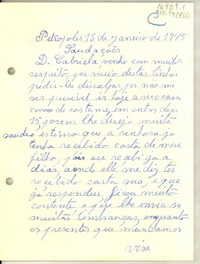 Petropolis 15 de Janeiro de 1945
Saudações
D. Gabriela venho com muito
respeito por meio destas linhas
pedir-lhe desculpas por não me
ser possivel ir hoje a sua casa
como de costume, em vertos dias
15, porem lhe desejo muita
saude estimo que a senhora ja
tenha recebido carta de meu
filho, pois eu recebi ja a
dias, aonde elle me diz ter
recebido carta sua, e que
ja respondeu, ficou muito
contente e que lhe envia as
muitas lembranças, enquanto
os presentes que mandamos